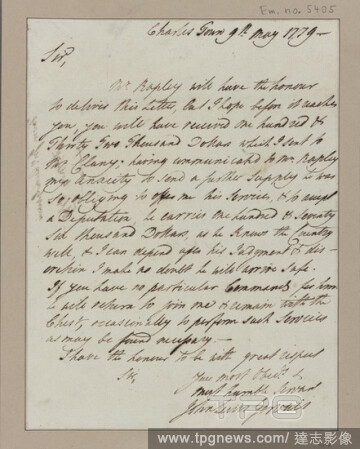 Em. no. 5405
Charles Town 9th May 1779—
Sir,
Mr Rapley will have the honour
to deliver this Letter, but I hope before it reaches
you, you will have received one hundred &
Thirty Two Thousand Dollars which I sent to
Mr Clany. having communicated to Mr Rapley
my to send a further Supply he was
so obliging to offer me his Service, & to accept
a Deputation, he carries one hundred & Seventy
Six thousand Dollars, as he knows the Country
well, & I can depend upon his Judgment & dis-
cretion I make no doubt he will arrive Safe.
If you have no particular Commands for him
he will return to join me & remain with the
Chest, occasionally to perform such Services
as may be found necessary—
I have the honour to be with great respect
Sir,
Your most Obedt &
most humble Servant
John Lewis Gervais
TPG
www.tpgnews.com / 達志影像